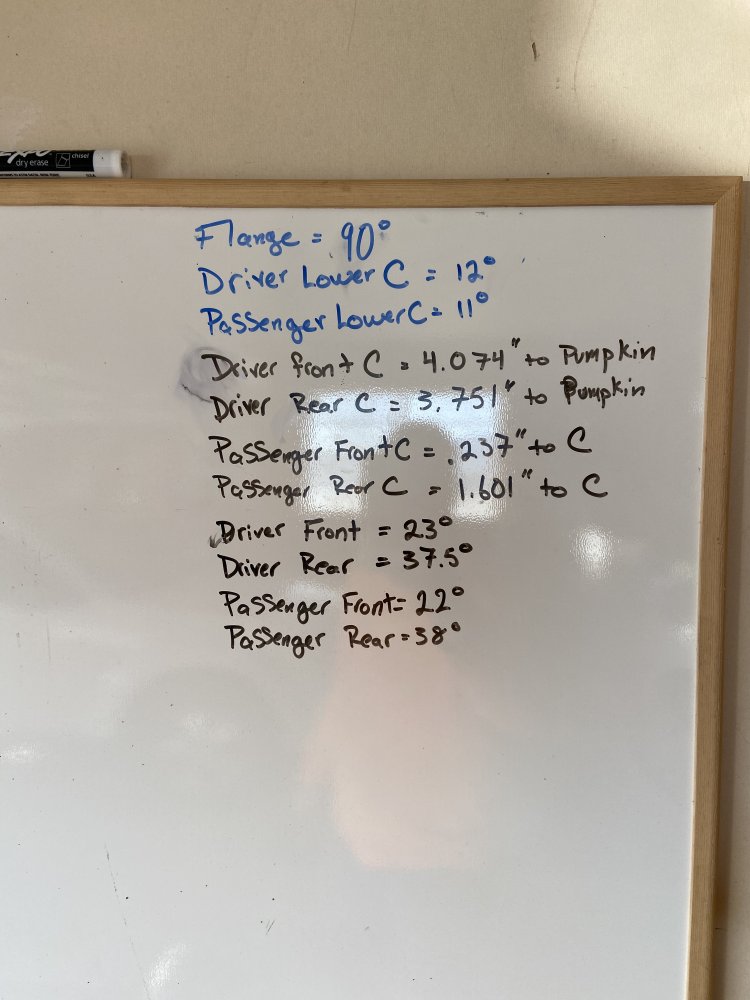 EXPO
dry erase
chisel
Flange = 90°
Driver Lower C = 12°
Passenger Lower C = 11°
Driver front C = 4.074" to Pumpkin
Driver Rear C = 3.751" to Pumpkin
Passenger Front C = .237" to C
Passenger Rear C = 1.601" to C
Driver Front = 23°
Driver Rear = 37.5°
Passenger Front = 22°
Passenger Rear = 38°